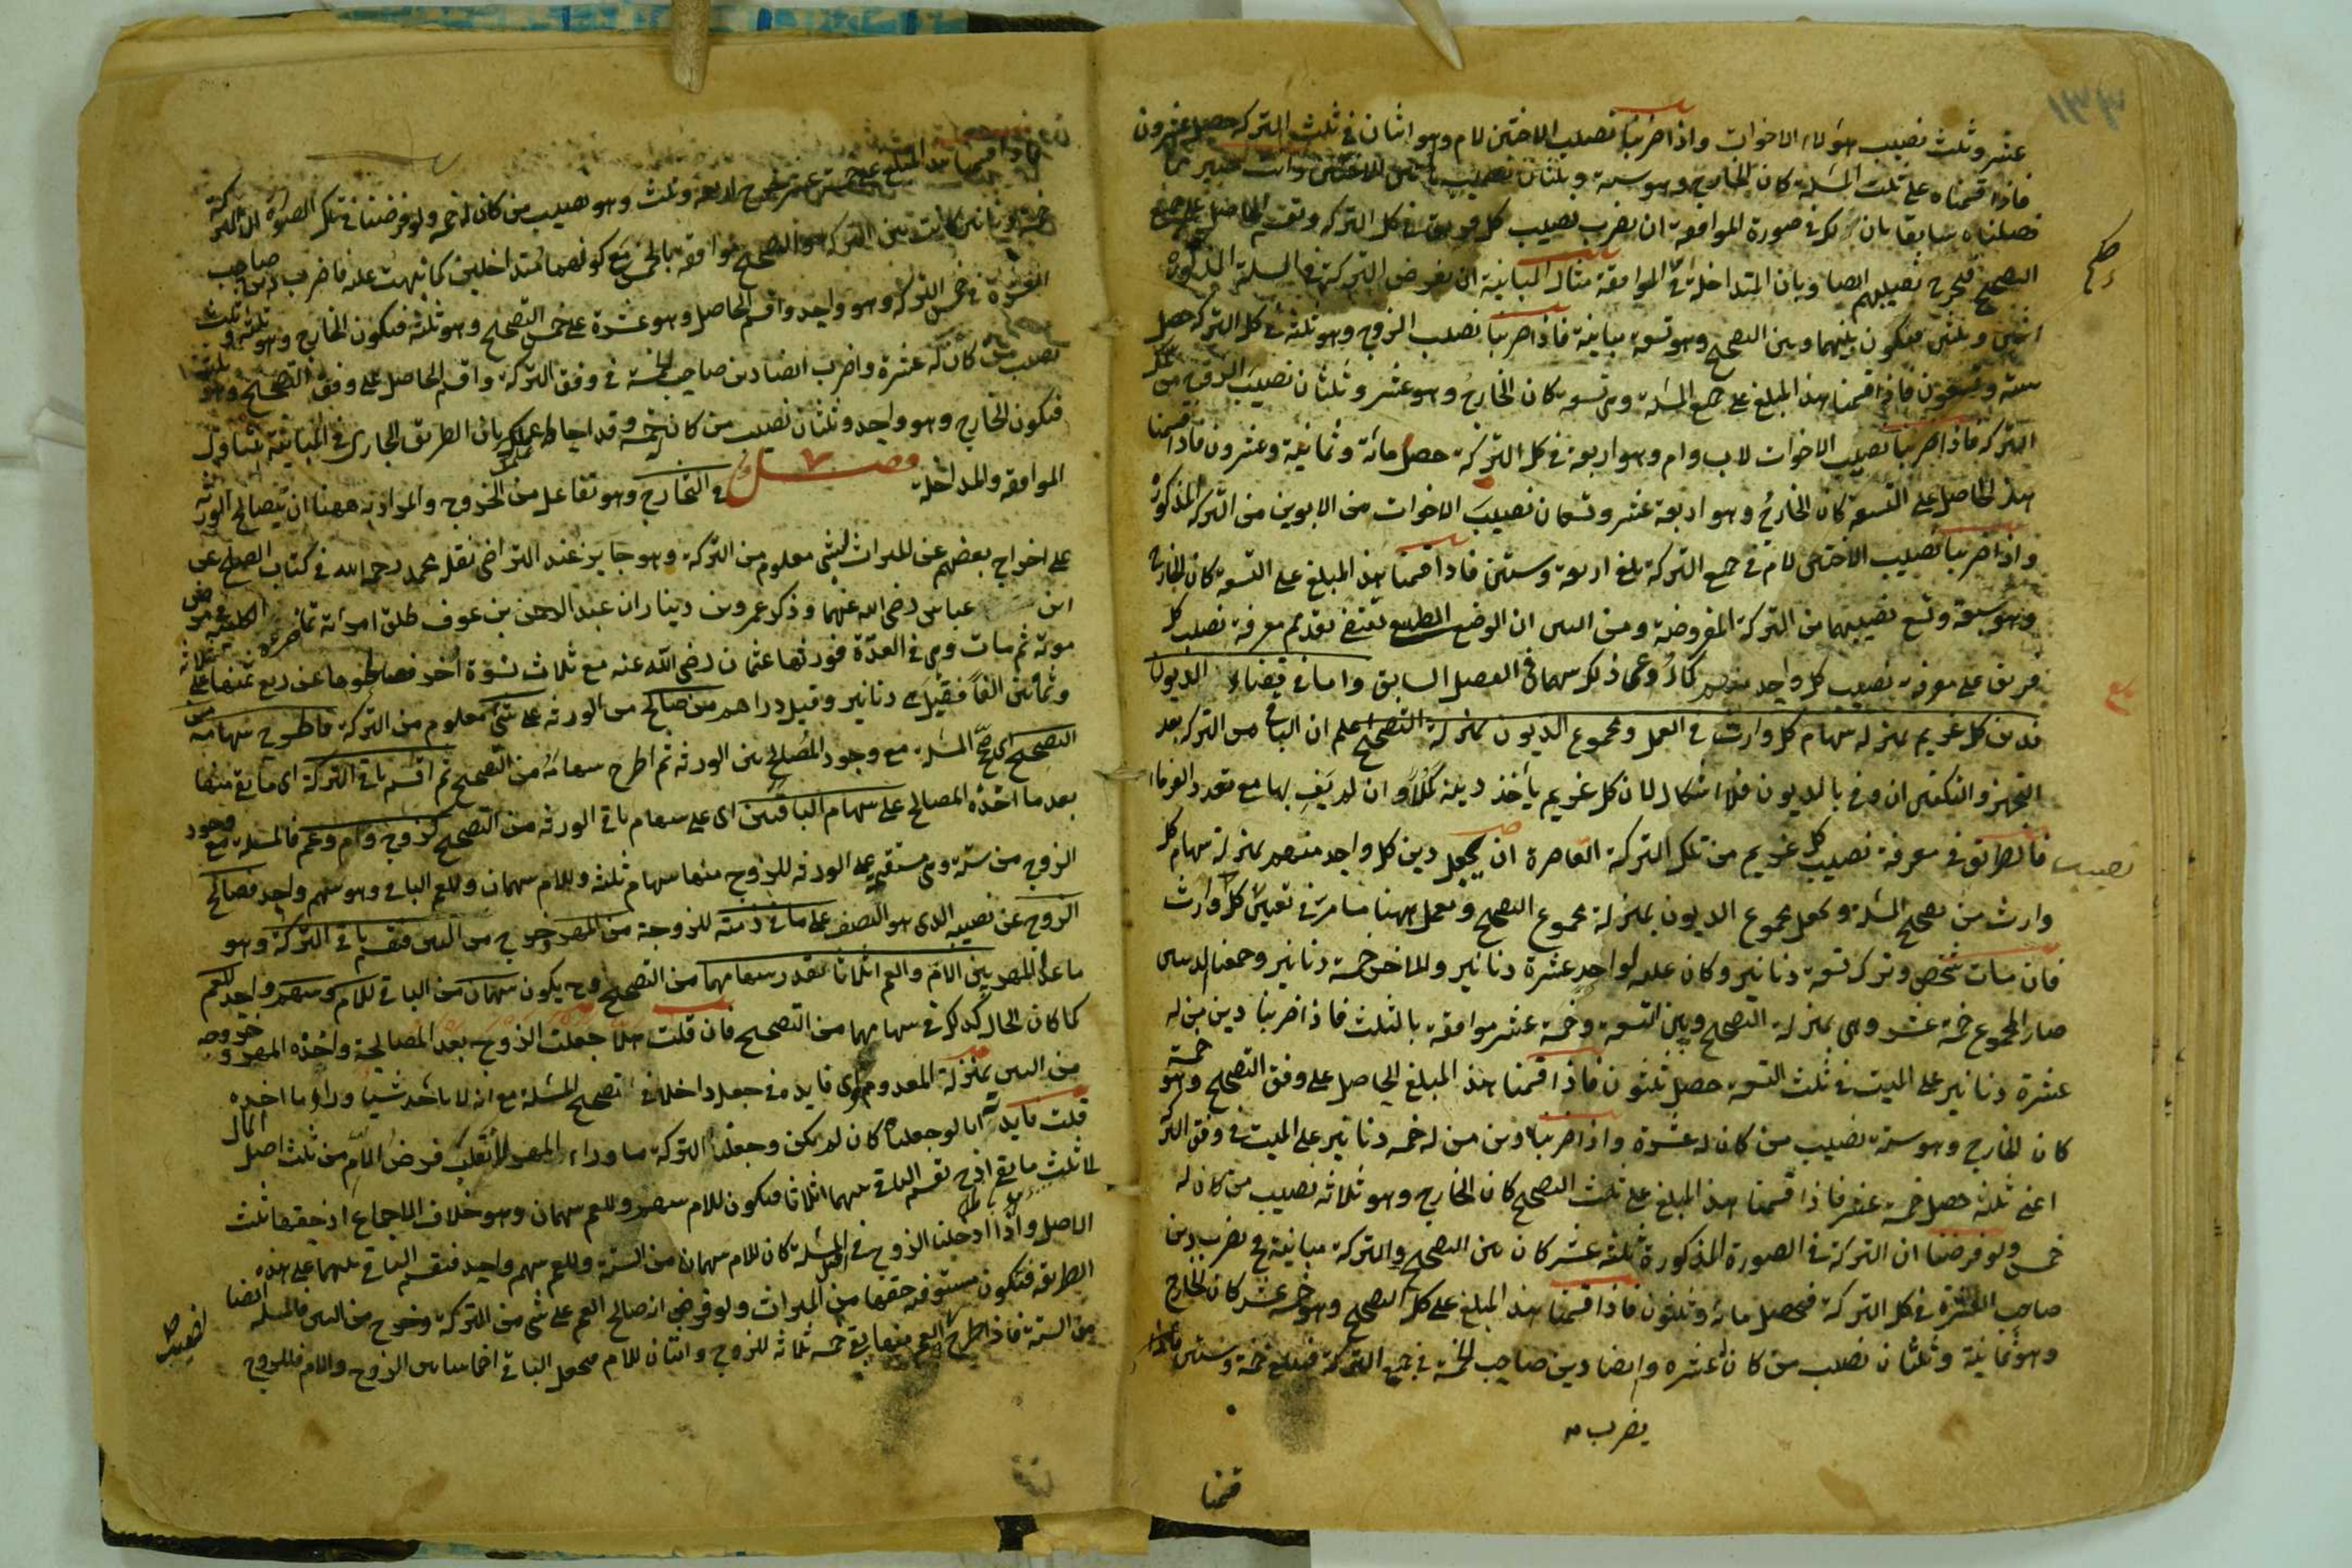 عشر وثلث نصيب هؤلاء الاخوات واذا ضربنا نصيب الاختين لام وهو اثنان في ثلث التركة حصل عشرون
فاذا قسمناه على ثلث المسئلة كان الخارج وهو ستة وثلثان نصيب
فصلناه سابقا بان لك في صورة الموافقة ان يضرب نصيب كل فريق في كل التركة وتقسم الحاصل على جميع
التصحيح فيخرج نصيبهم ايضا وبان المتداخلة في الموافقة مثال المباينة ان نفرض التركة في المسئلة المذكورة
اثنين وثلثين فيكون بينهما وبين التصحيح وهو تسعة مباينة فاذا ضربنا نصيب الزوج وهو ثلثة في كل التركة حصل
ستة وتسعون فاذا قسمنا هذا المبلغ على جميع المسئلة وهي تسعة كان الخارج وهو عشر وثلثان نصيب الزوج من تلك
التركة فاذا ضربنا نصيب الاخوات لاب وام وهو اربعة في كل التركة حصل مائة وثمانية وعشرون فاذا قسمنا
هذا الحاصل على التسعة كان الخارج وهو اربعة عشر وتسعان نصيب الاخوات من الابوين من التركة المذكورة
واذا ضربنا نصيب الاختين لام في جميع التركة بلغ اربعة وستين فاذا قسمنا هذا المبلغ على التسعة كان الخارج
وهو سبعة وتسع نصيبهما من التركة المفروضة ومن البين ان الوضع الطبيع يقتضي تقديم معرفة نصيب كل
فريق على معرفة نصيب كل واحد منهم كما روعي ذلك سهام في الفصل السابق واما في قضاء الديون
فدين كل غريم بمنزلة سهام كل وارث في العمل ومجموع الديون بمنزلة التصحيح اعلم ان الباقي من التركة بعد
التجهيز والتكفين ان وفى بالديون فلا اشكال لان كل غريم يأخذ دينه كملا وان لم يف بها مع تعدد الغرماء
فالطريق في معرفة نصيب كل غريم من تلك التركة القاصرة ان يجعل دين كل واحد منهم بمنزلة سهام كل
نصيب
وارث من تصحيح المسئلة ويجعل مجموع الديون بمنزلة مجموع التصحيح ويعمل ههنا ما مر في تعيين كل وارث
فان مات شخص وترك تسعة دنانير وكان عليه لواحد عشرة دنانير ولآخر خمسة دنانير وجمعنا الدينين
صار المجموع خمسة عشر وهي بمنزلة التصحيح وبين التسعة وخمسة عشر موافقة بالثلث فاذا ضربنا دين من له
عشرة دنانير على الميت في ثلث التسعة حصل ثلثون فاذا قسمنا هذا المبلغ الحاصل على وفق التصحيح وهو خمسة
كان الخارج وهو ستة نصيب من كان له عشرة واذا ضربنا دين من له خمسة دنانير على الميت في وفق التركة
اعني ثلثة حصل خمسة عشر فاذا قسمنا هذا المبلغ على ثلث التصحيح كان الخارج وهو ثلاثة نصيب من كان له
خمس ولو فرضنا ان التركة في الصورة المذكورة ثلثة عشر كان بين التصحيح والتركة مباينة فح يضرب دين
صاحب العشرة في كل التركة فيحصل مائة وثلثون فاذا قسمنا هذا المبلغ على كل التصحيح وهو خمسة عشر كان الخارج
وهو ثمانية وثلثان نصيب من كان له عشرة وايضا دين صاحب الخمسة في جميع التركة فيبلغ خمسة وستين
يضرب
فاذا قسمنا هذا المبلغ على خمسة عشر يخرج اربعة وثلث وهو نصيب من كان له خمسة ولو فرضنا في تلك الصورة ان التركة
خمسة كانت بين التركة والتصحيح موافقة بالخمس مع كونهما متداخلين كما نبهت عليه فاضرب دين صاحب
العشرة في خمس التركة وهو واحد واقسم الحاصل وهو عشرة على خمس التصحيح وهو ثلثة فيكون الخارج وهو ثلثة وثلث
نصيب من كان له عشرة واضرب ايضا دين صاحب الخمسة في وفق التركة واقسم الحاصل على وفق التصحيح وهو ثلثة
فيكون الخارج وهو واحد وثلثان نصيب من كان له خمسة وقد احاط علمك بان الطريق الجاري في المباينة يتناول
الموافقة والمداخلة فصل في التخارج وهو تفاعل من الخروج والمراد به ههنا ان يتصالح الورثة
على اخراج بعضهم عن الميراث بشيء معلوم من التركة وهو جائز عند التراضي نقله محمد رحمه الله في كتاب الصلح عن
ابن عباس رضي الله عنهما وذكر عمرو بن دينار ان عبد الرحمن بن عوف طلق امرأته تماضر الكلبية في مرض
موته ثم مات وهي في العدة فورثها عثمان رضي الله عنه مع ثلاث نسوة أخر فصالحوها عن ربع ثمنها على ثلاثة
وثمانين الفا فقيل هي دنانير وقيل دراهم من صالح من الورثة على شيء معلوم من التركة فاطرح سهامه من
التصحيح اي صح المسئلة مع وجود المصالح بين الورثة ثم اطرح سهامه من التصحيح ثم اقسم باقي التركة اي ما بقي منها
بعد ما اخذه المصالح على سهام الباقين اي على سهام باقي الورثة من التصحيح كزوج وام وعم فالمسئلة مع وجود
الزوج من ستة وهي مستقيمة على الورثة للزوج منها سهام ثلثة وللام سهمان وللعم الباقي وهو سهم واحد فصالح
الزوج عن نصيبه الذي هو النصف على ما في ذمته للزوجة من المهر وخرج من البين فيقسم باقي التركة وهو
ما عدا المهر بين الام والعم اثلاثا بقدر سهامهما من التصحيح وح يكون سهمان من الباقي للام وسهم واحد للعم
كما كان الحال كذلك في سهامهما من التصحيح فان قلت هلا جعلت الزوج بعد المصالحة واخذه المهر وخروجه
من البين بمنزلة المعدوم واي فائدة في جعله داخلا في تصحيح المسئلة مع انه لا يأخذ شيئا وراء ما اخذه
قلت فائدته انا لو جعلناه كان لم يكن وجعلنا التركة ما وراء المهر لانقلب فرض الام من ثلث اصل المال
الى ثلث ما بقي اذ ح يقسم الباقي بينهما اثلاثا فيكون للام سهم وللعم سهمان وهو خلاف الاجماع اذ حقها ثلث
الاصل واذا ادخلنا الزوج في اصل المسئلة كان للام سهمان من الستة وللعم سهم واحد فيقسم الباقي بينهما على هذه
الطريقة فتكون مستوفية حقها من الميراث ولو فرض انه صالح العم على شيء من التركة وخرج من البين فالمسئلة ايضا
من الستة فاذا طرح سهم العم منها بقي خمسة ثلاثة للزوج واثنان للام فيجعل الباقي اخماسا بين الزوج والام فللزوج